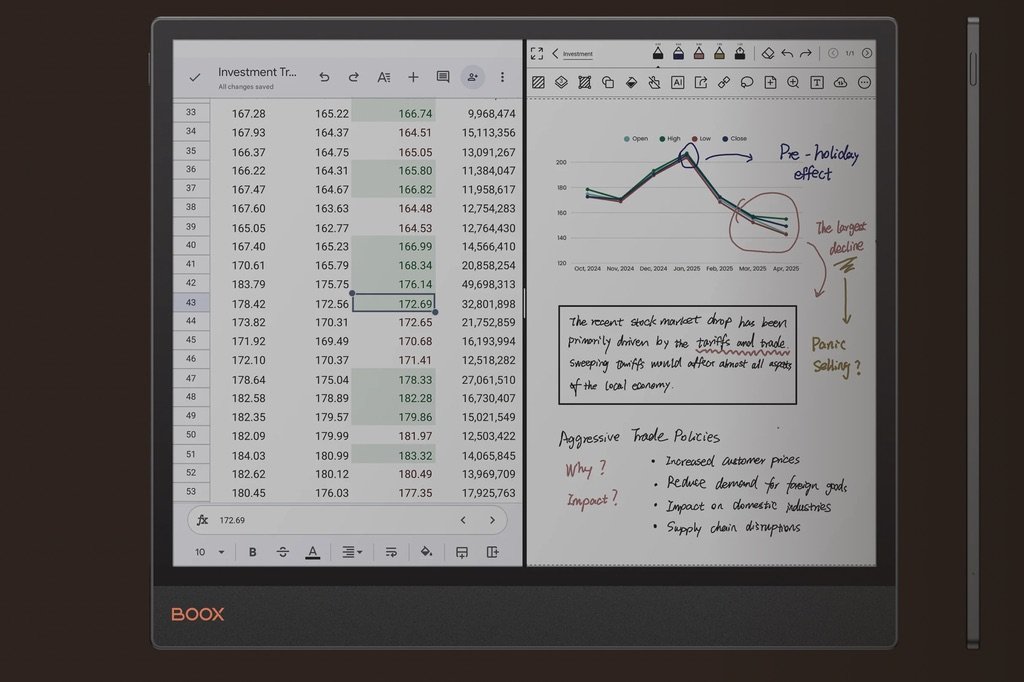 Investment Tr...
All changes saved
33 167.28 165.22 166.74 9,968,474
34 167.93 164.37 164.51 15,113,356
35 166.37 164.75 165.05 13,091,267
36 166.22 164.31 165.80 11,384,047
37 167.47 164.67 166.82 11,958,617
38 167.60 163.63 164.48 12,754,283
39 165.05 162.77 164.53 12,764,430
40 167.40 165.23 166.99 14,566,410
41 170.61 165.79 168.34 20,858,254
42 183.79 175.75 176.14 49,698,313
43 178.42 172.56 172.69 32,801,898
44 173.82 170.31 172.65 21,752,859
45 171.92 169.49 170.68 16,193,994
46 172.10 170.37 171.41 12,518,282
47 178.64 175.04 178.33 27,061,510
48 182.58 178.89 182.28 16,730,407
49 182.35 179.57 179.86 15,021,549
50 182.09 179.99 181.97 12,503,422
51 184.03 180.99 183.32 14,065,845
52 182.62 180.12 180.49 13,969,709
53 180.45 176.03 177.35 17,925,763
fx 172.69
10 B S A
Investment
1/1
AI T
Open High Low Close
200
180
160
140
120
Oct, 2024 Nov, 2024 Dec, 2024 Jan, 2025 Feb, 2025 Mar, 2025 Apr, 2025
Pre-holiday
effect
The largest
decline
Panic
Selling?
The recent stock market drop has been
primarily driven by the tariffs and trade.
Sweeping tariffs would affect almost all aspects
of the local economy.
Aggressive Trade Policies
Why?
Impact?
• Increased customer prices
• Reduce demand for foreign goods
• Impact on domestic industries
• Supply chain disruptions
BOOX